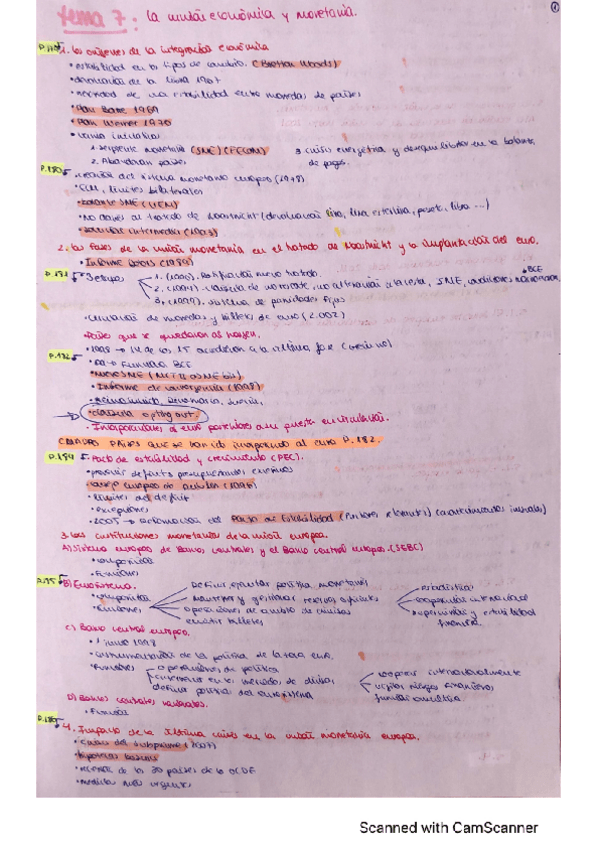 Tema 7: La unión económica y monetaria.
1. Los orígenes de la integración económica
• estabilidad en los tipos de cambio. (Bretton Woods)
• devaluación de la libra 1967
• necesidad de una estabilidad entre monedas de países
• Plan Barre 1969
• Plan Werner 1970
• varias iniciativas
1. serpiente monetaria (SME) (FECOM)
3 crisis energética y desequilibrios en la balanza de pagos.
2. Abandonan países
P.180
• creación del sistema monetario europeo (1978)
• ECU, límites bilaterales
• (UEM)
• No apoyo al tratado de Maastricht (devaluación lira, libra esterlina, peseta, libra ...)
2. Las fases de la unión monetaria en el tratado de Maastricht y la implantación del euro.
• Informe Delors (1989)
P.181
• 3 etapas
1. (1990). Ratificación nuevo tratado.
2. (1994).
• BCE
3. (1999). sistema de paridades fijas
• circulación de monedas y billetes de euro (2.002)
• Países que se quedaron al margen.
P.182
• 1998 → 11 de los 15 accedieron a la última fase
• funciona BCE
• Informe de convergencia (1998)
• Reino Unido, Dinamarca, Suecia.
• cláusula opting out.
• Incorporaciones al euro posteriores a su puesta en circulación.
CUADRO PAÍSES QUE se han ido incorporando al euro P. 182.
P.184
• Pacto de estabilidad y crecimiento (PEC).
• prevenir déficits presupuestarios excesivos
• consejo europeo de Dublín (1996)
• límites del déficit
• excepciones
• 2005 → Reformación del Pacto de Estabilidad
3. Las instituciones monetarias de la unión europea.
A) Sistema europeo de Bancos centrales y el Banco central europeo. (SEBC)
• composición
• funciones
B) Eurosistema.
• composición
• funciones
Definir ejecutar política monetaria
mantener y gestionar reservas oficiales
operaciones de cambio de divisas
emitir billetes
estadística
cooperación internacional
supervisión y estabilidad financiera.
C) Banco central europeo.
• 1 junio 1998
• instrumentación de la política de la zona euro.
• funciones
operaciones de política
intervenir en el mercado de divisas
definir política del eurosistema
cooperar internacionalmente
vigilar riesgos financieros
función consultiva
D) Bancos centrales nacionales.
• función
4. Impacto de la última crisis en la unión monetaria europea.
• crisis del subprime (2007)
• hipotecas basura
• recesión de los 30 países de la OCDE
• medidas más urgentes
Scanned with CamScanner